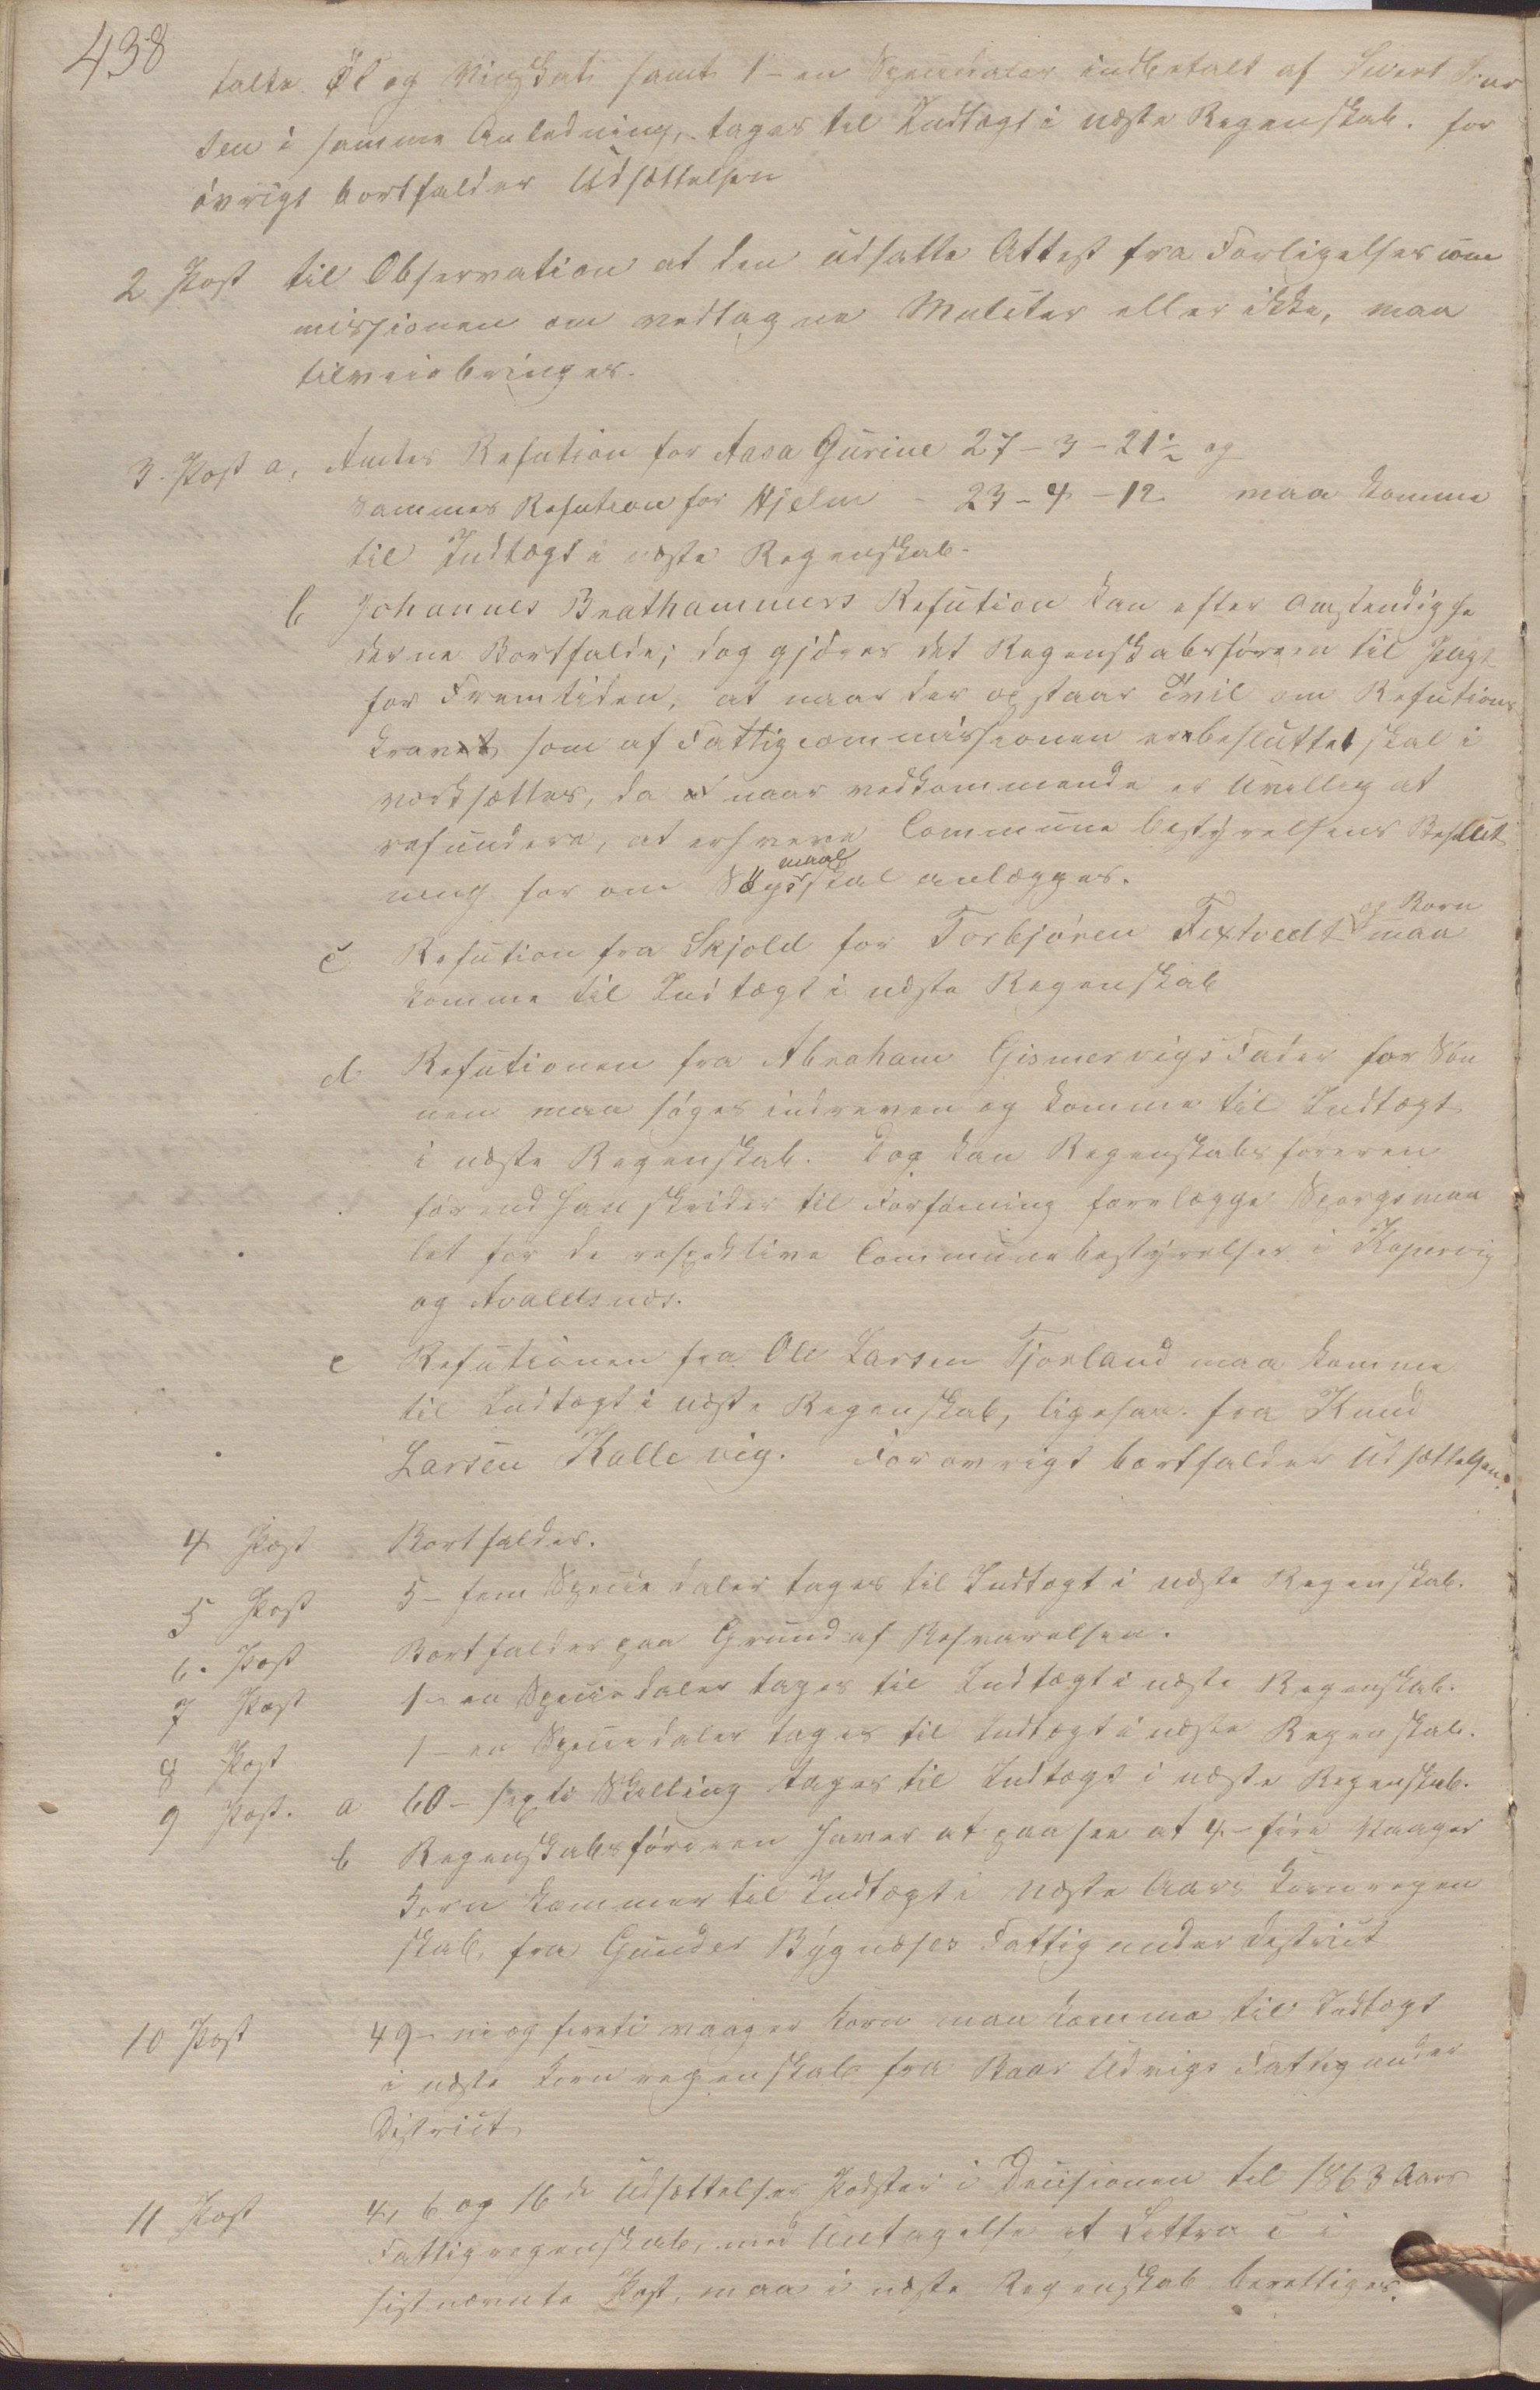 438
talte Øl og Vinskat samt 1 - en Speciedaler indbetalt af Sivert Iver
sen i samme Anledning, tages til Indtægt i næste Regenskab. for
øvrigt bortfalder Udsættelsen
2 Post til Observation at den udsatte Attest fra Forligelsescom
missionen om vedtagne Mulcter eller ikke, maa
tilveiebringes.
3. Post a, Amtes Refution for Aasa Gurine 27-3-21½ og
Sammes Refution for Hjelm - 23-4-12 maa komme
til Indtægt i næste Regenskab.
b Johannes Brathammers Refution kan efter Omstendighe
derne Bortfalde; dog gjøres det Regenskabsføreren til Pligt
for Fremtiden, at naar der opstaar Tvil om Refutions
kravet, som af Fattigcommissionen er besluttet skal i
værksættes, da naar vedkommende er Uvillig at
refundere, at erhverve Communebestyrelsens Beslut
ning for om Søgsmaal skal anlægges.
c Refution fra Skjold for Torbjøren Fextvedt og Born maa
komme til Indtægt i næste Regenskab
d Refutionen fra Abraham Gismervigs Fader for Søn
nen maa søges indreven og komme til Indtægt
i næste Regenskab. Dog kan Regenskabsføreren
førend han skrider til forføining forelægge Spørgsmaa
let for de respektive Communebestyrelser i Kopervig
og Avaldsnæs.
e Refutionen fra Ole Larsen Tjorland maa komme
til Indtægt i næste Regenskab, ligesaa fra Knud
Larsen Kallevig. For øvrigt bortfalder Udsættelsen.
4 Post Bortfalder.
5 Post 5 - fem Speciedaler tages til Indtægt i næste Regenskab.
6. Post Bortfalder paa Grund af Besvarelsen.
7 Post 1 - en Speciedaler tages til Indtægt i næste Regenskab.
8 Post 1 - en Speciedaler tages til Indtægt i næste Regenskab.
9 Post. a 60 - sexti Skelling tages til Indtægt i næste Regenskab.
b Regenskabsføreren haver at paasee at 4 - fire Vaager
Korn kommer til Indtægt i næste Aars Kornregen
skab, fra Gunder Bygnæses Fattigunderdistrict
10 Post 49 - niogfireti vaager Korn maa komme til Indtægt
i næste Kornregenskab fra Baar Udvigs Fattigunder
District
11 Post 4, 6 og 16de Udsættelses Poster i Decisionen til 1863 Aars
Fattigregenskab, med Untagelse af Littra c i
sistnævnte Post, maa i næste Regenskab berettiges.